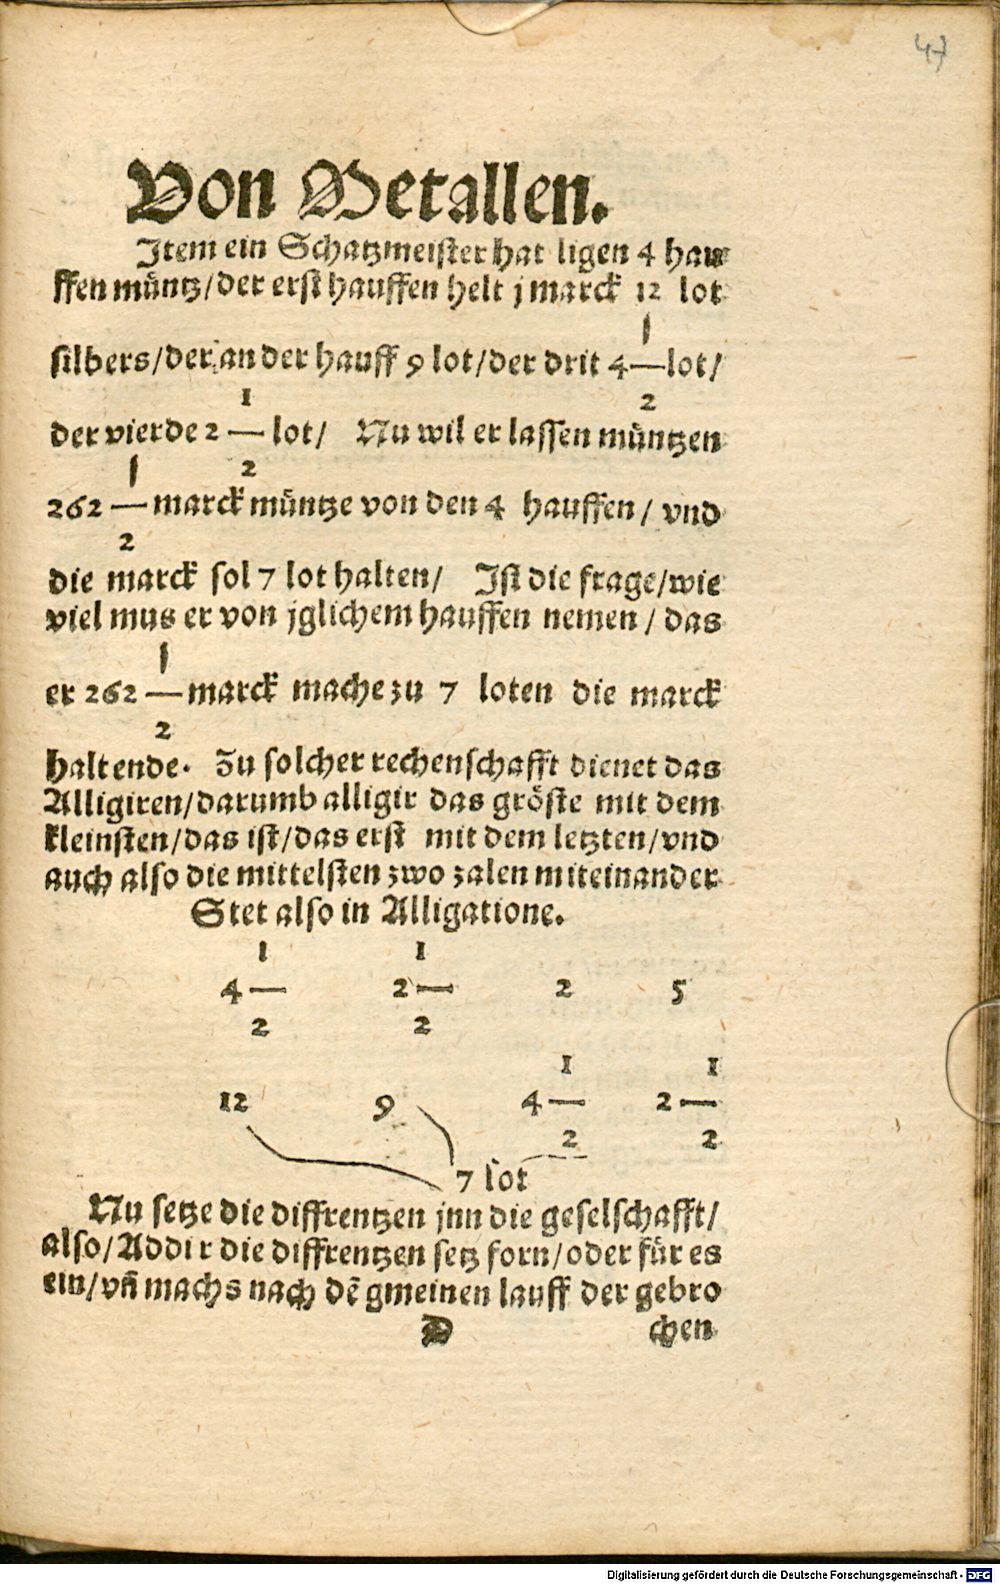 47
Von Metallen.
Item ein Schatzmeister hat ligen 4 hau
ffen müntz/der erst hauffen helt j marck 12 lot
silbers/der ander hauff 9 lot/der drit 4 1/2 lot/
der vierde 2 1/2 lot/ Nu wil er lassen müntzen
262 1/2 marck müntze von den 4 hauffen/ vnd
die marck sol 7 lot halten/ Ist die frage/wie
viel mus er von jglichem hauffen nemen/ das
er 262 1/2 marck mache zu 7 loten die marck
haltende. Zu solcher rechenschafft dienet das
Alligiren/darumb alligir das gröste mit dem
kleinsten/das ist/das erst mit dem letzten/vnd
auch also die mittelsten zwo zalen miteinander
Stet also in Alligatione.
4 1/2 2 1/2 2 5
12 9 4 1/2 2 1/2
7 lot
Nu setze die diffrentzen jnn die geselschafft/
also/Addir die diffrentzen setz forn/oder für es
ein/vñ machs nach dẽ gmeinen lauff der gebro
D chen
Digitalisierung gefördert durch die Deutsche Forschungsgemeinschaft - DFG